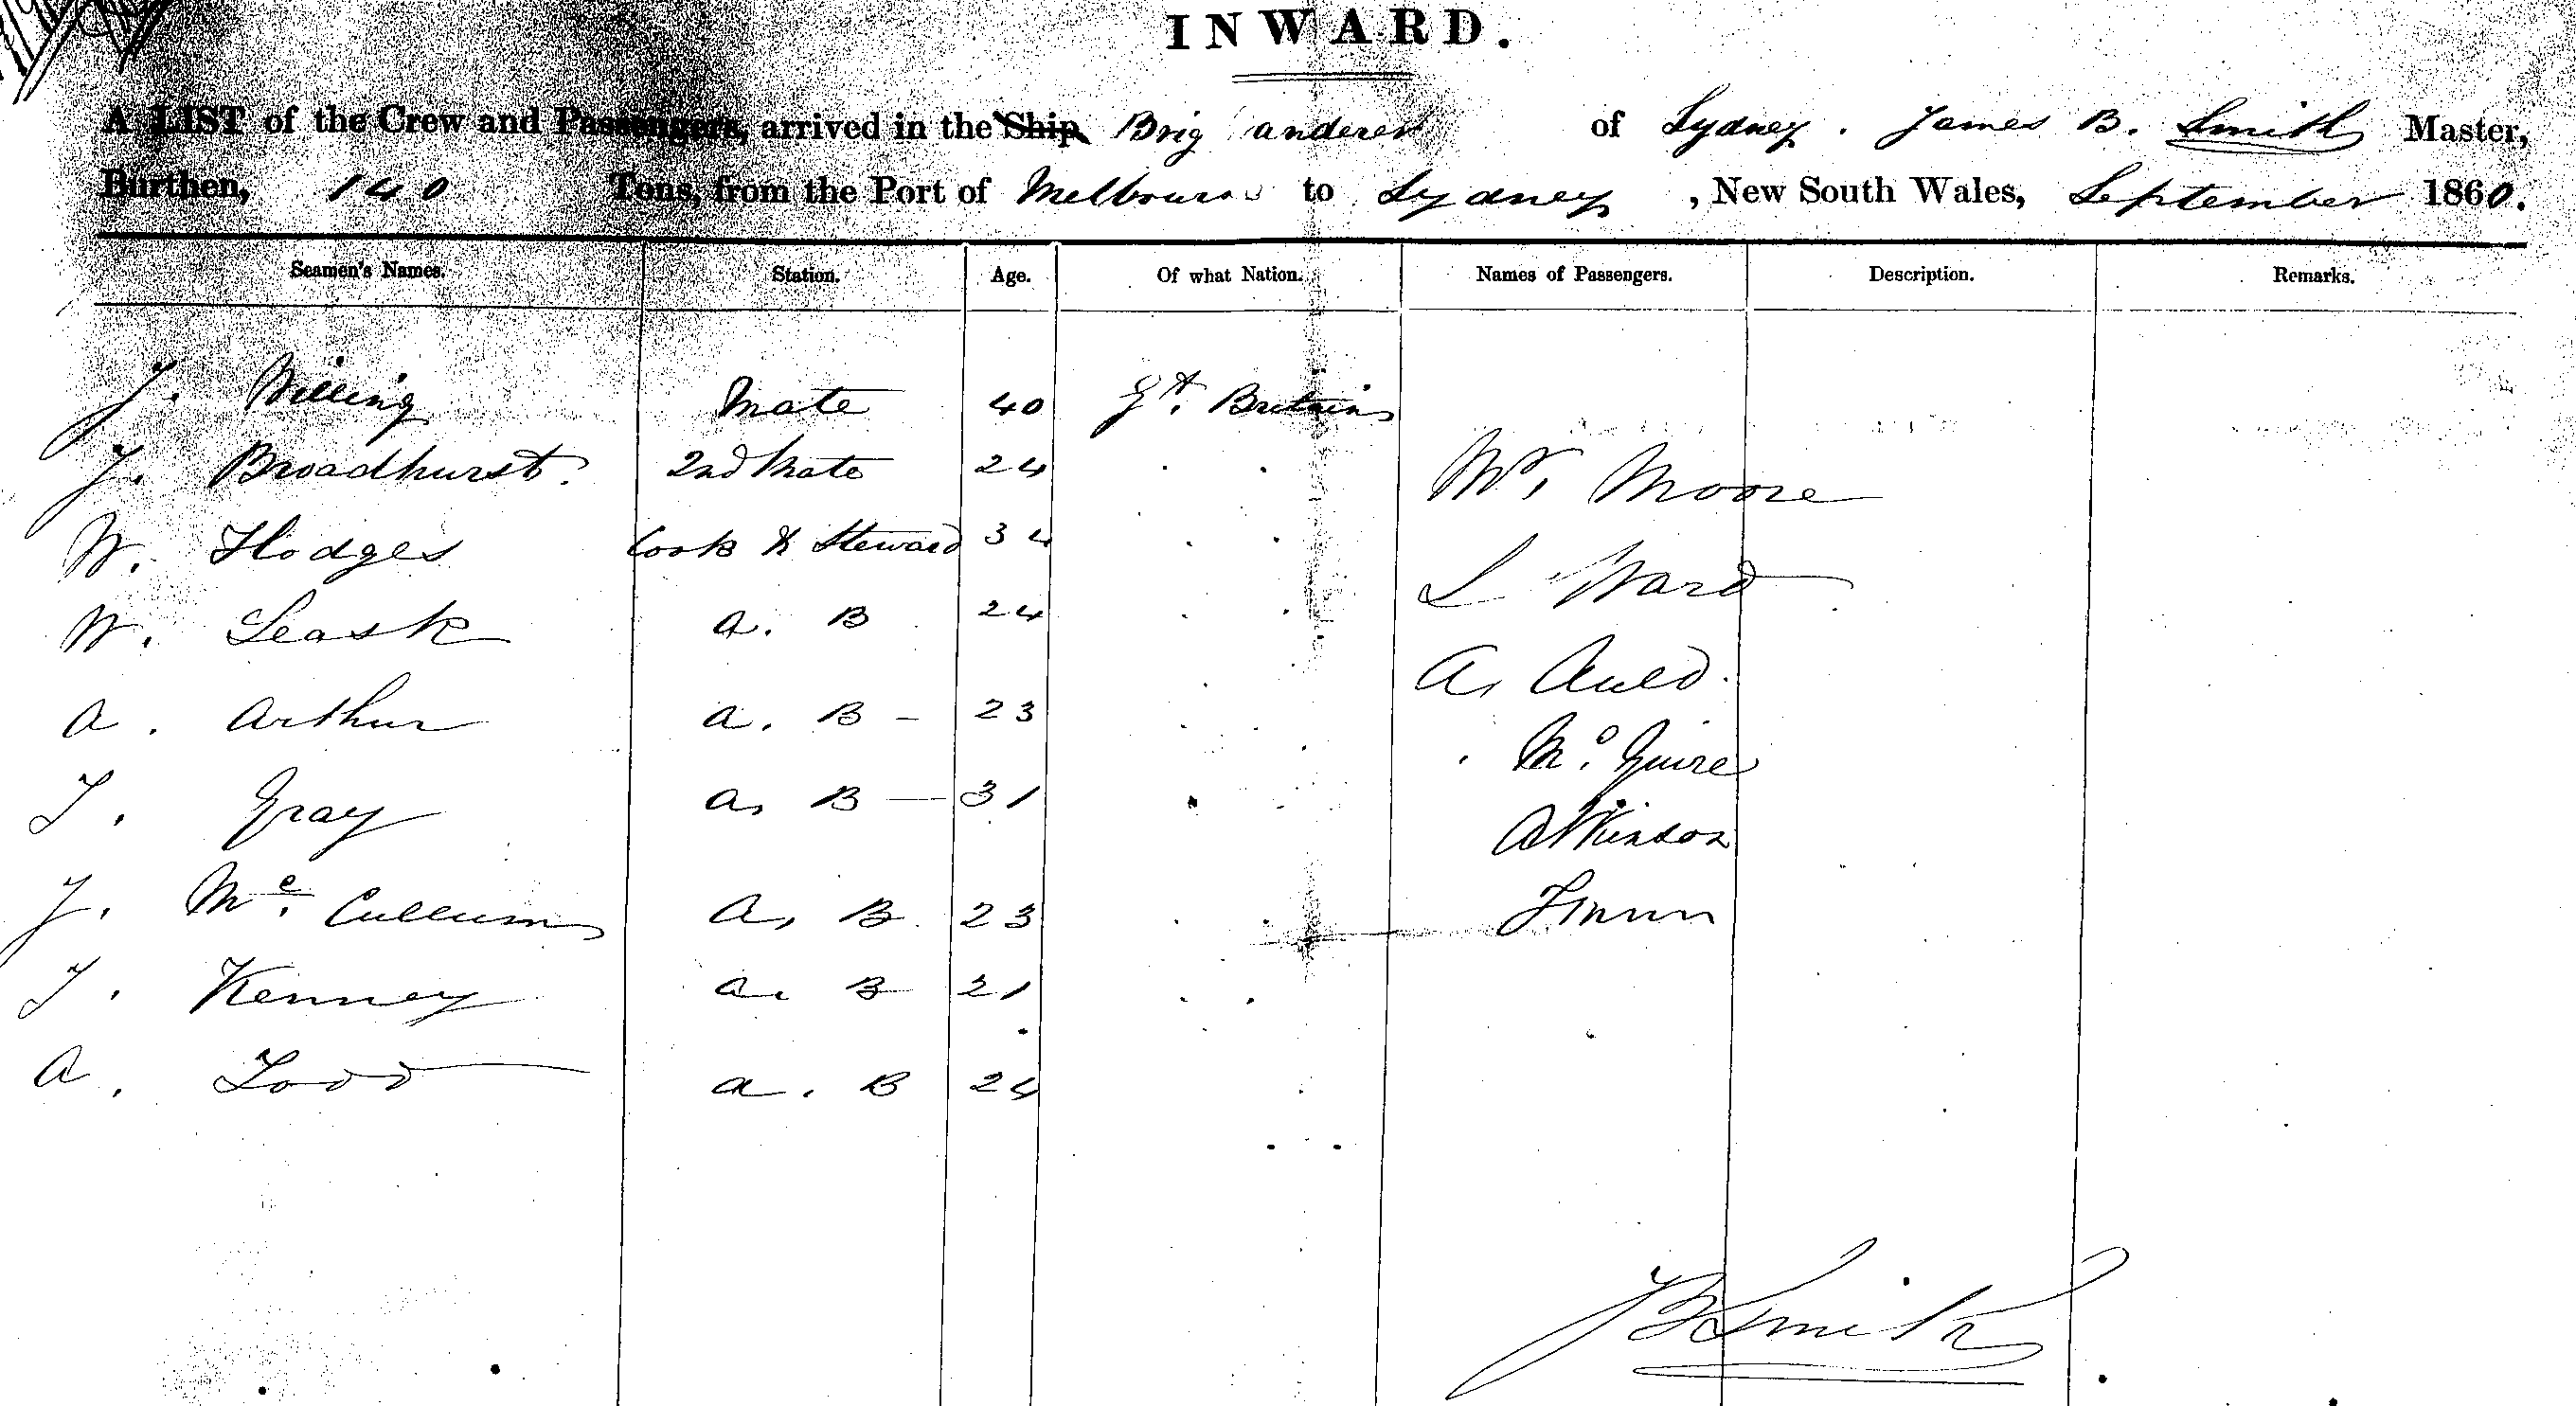 INWARD.
A LIST of the Crew and Passengers, arrived in the Ship Brig of Sydney. James B. Smith Master,
Burthen, 140 Tons, from the Port of Melbourne to Sydney, New South Wales, September 1860.
Seamen's Names. Station. Age. Of what Nation. Names of Passengers. Description. Remarks.
J. Milling Mate 40 Gt. Britain
J. Broadhurst. 2nd Mate 24 Mr. Moore
W. Hodges Cook & Steward 34 L Ward
W. Leask a. B 24 A. Auld.
a. Arthur a. B - 23 Mc. Guire
T. Gray a. B — 31 Atkinson
J. Mc. Cullum A. B 23
T. Kenney a. B 21
A. Todd a. B 24
JB Smith